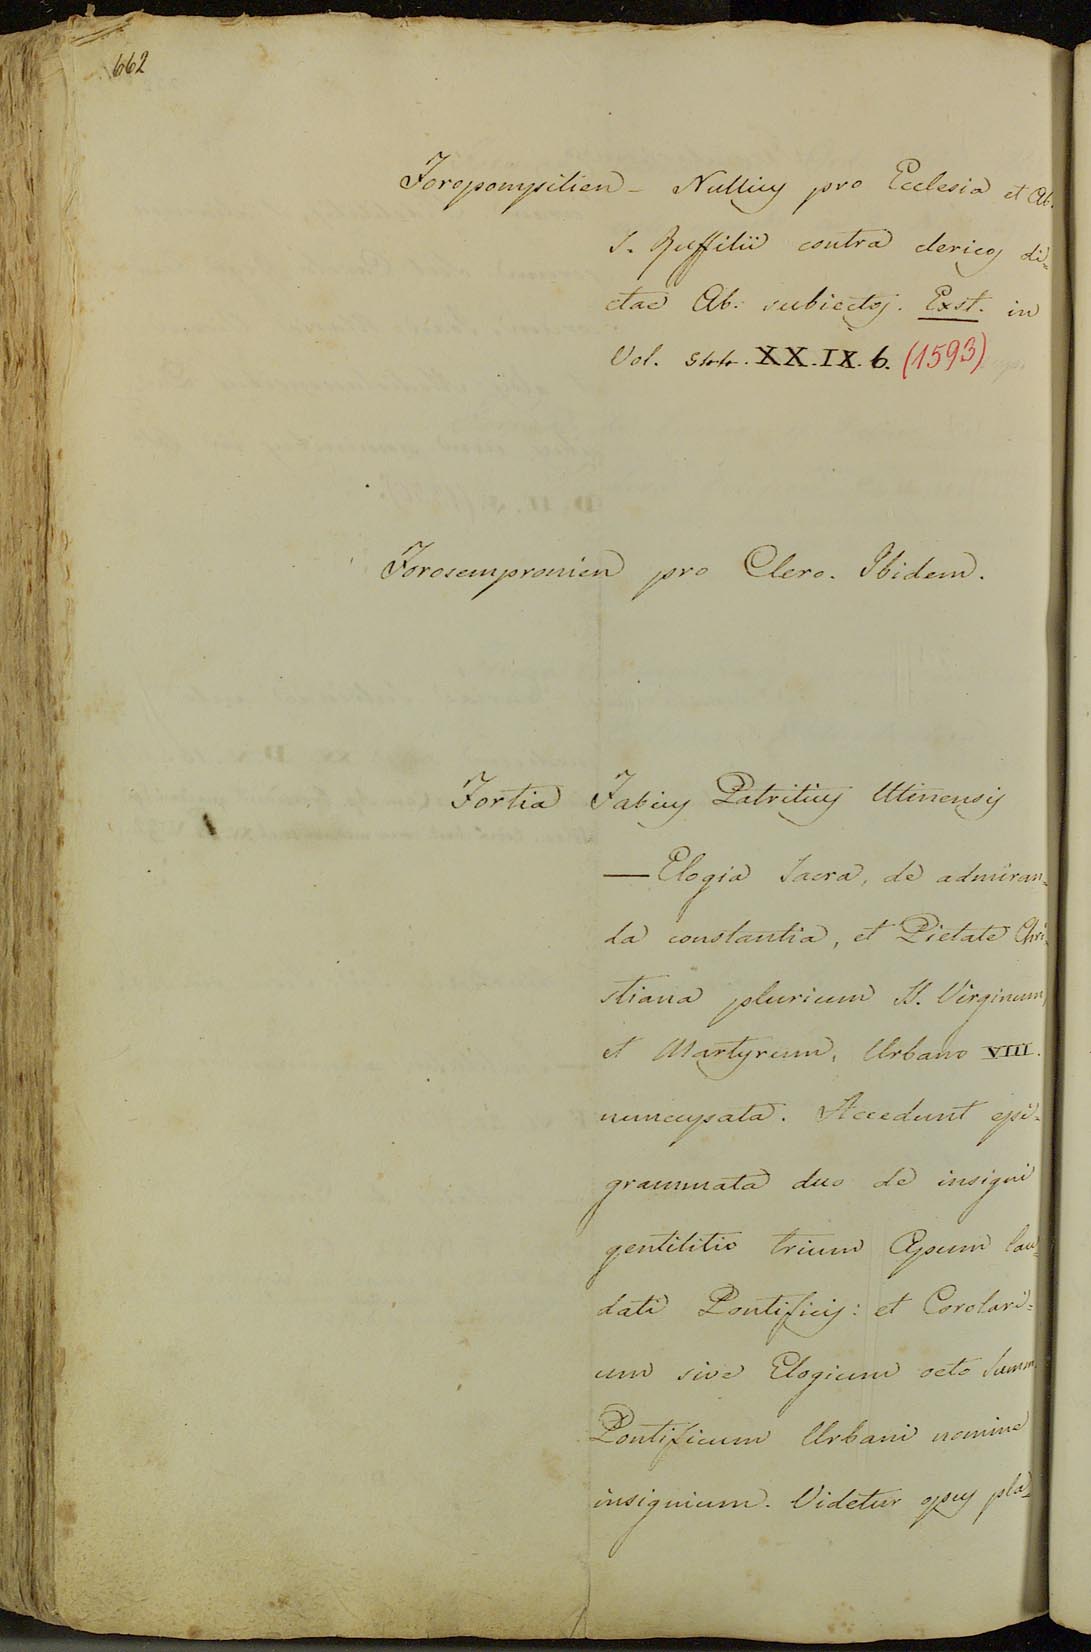 662
Foropompilien - Nullius pro Ecclesia et Ab.
S. Ruffilii contra clericos di-
ctae Ab: subiectos. Exst. in
Vol. 544. XX.IX.6. (1593)
Forosempronien pro Clero. Ibidem.
Fortia Fabius Patritius Utinensis
— Elogia Sacra, de admiran-
da constantia, et Pietate Chri-
stiana plurium SS. Virginum,
et Martyrum, Urbano VIII.
nuncupata. Accedunt epi-
grammata duo de insigni
gentilitio trium Apum lau-
dati Pontificis: et Corolari-
um sive Elogium octo Summ.
Pontificum Urbani nomine
insignium. Videtur opus pla-